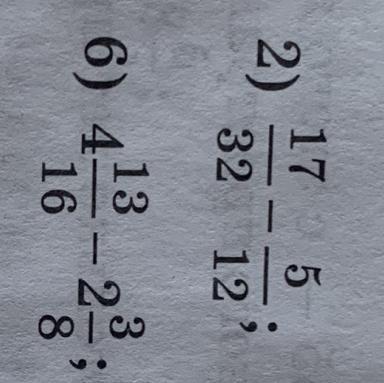 2) 17/32 − 5/12;
6) 4 13/16 − 2 3/8;